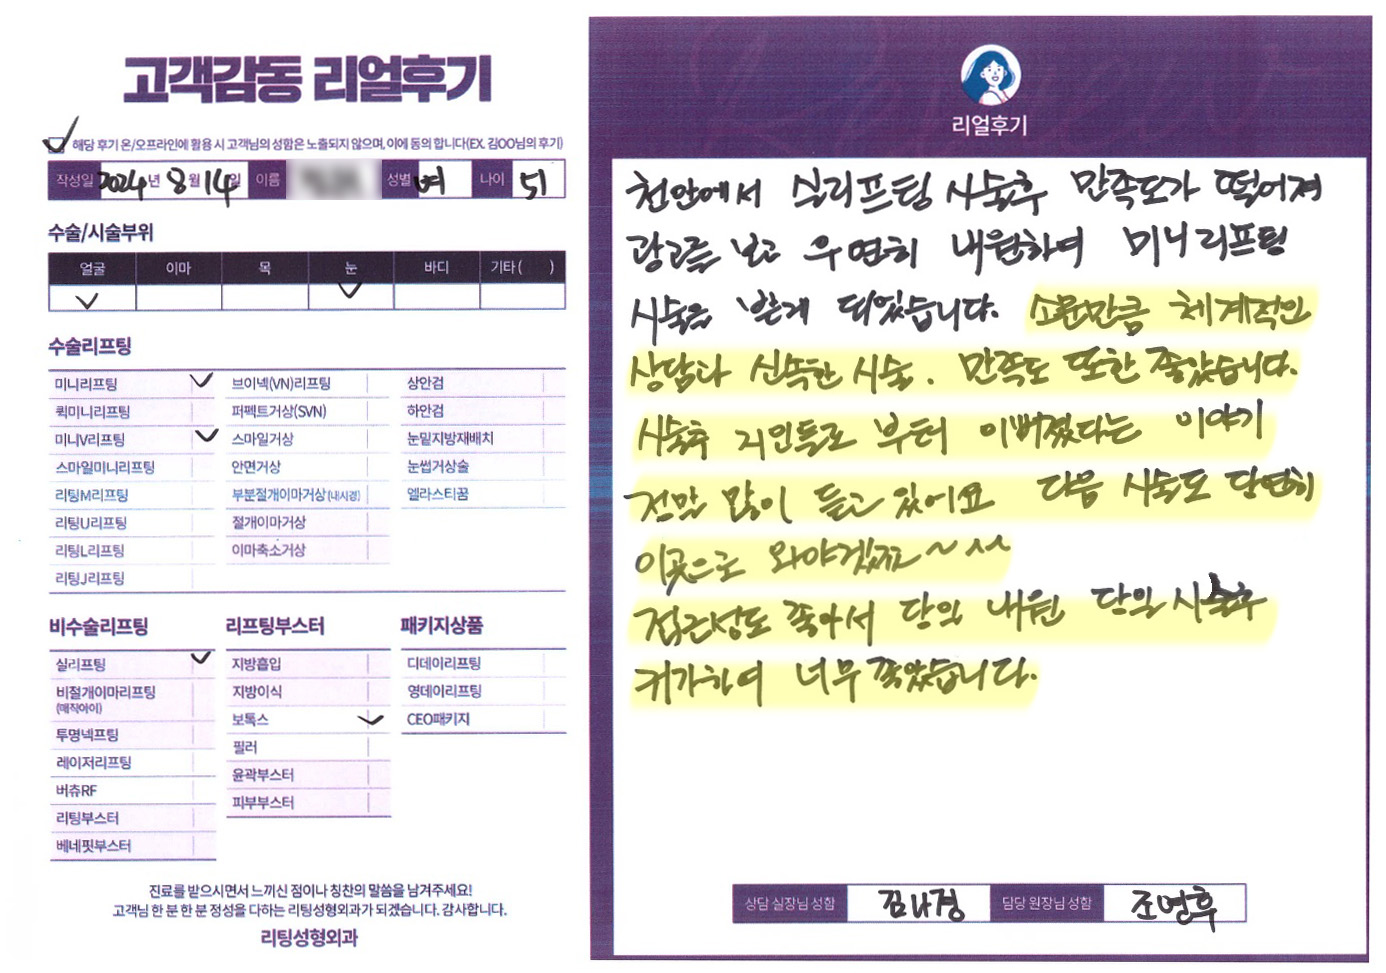 고객감동 리얼후기
해당 후기 온/오프라인에 활용 시 고객님의 성함은 노출되지 않으며, 이에 동의 합니다(EX. 김OO님의 후기)
작성일 2024년 8월 14일 이름 성별 여 나이 51
수술/시술부위
얼굴 이마 목 눈 바디 기타 ( )
수술리프팅
미니리프팅
퀵미니리프팅
미니V리프팅
스마일미니리프팅
리팅M리프팅
리팅U리프팅
리팅L리프팅
리팅J리프팅
브이넥(VN)리프팅
퍼펙트거상(SVN)
스마일거상
안면거상
부분절개이마거상(내시경)
절개이마거상
이마축소거상
상안검
하안검
눈밑지방재배치
눈썹거상술
엘라스티꿈
비수술리프팅
실리프팅
비절개이마리프팅
(매직아이)
투명넥프팅
레이저리프팅
버츄RF
리팅부스터
베네핏부스터
리프팅부스터
지방흡입
지방이식
보톡스
필러
윤곽부스터
피부부스터
패키지상품
디데이리프팅
영데이리프팅
CEO패키지
진료를 받으시면서 느끼신 점이나 칭찬의 말씀을 남겨주세요!
고객님 한 분 한 분 정성을 다하는 리팅성형외과가 되겠습니다. 감사합니다.
리팅성형외과
리얼후기
천안에서 실리프팅 시술후 만족도가 떨어져
광고를 보고 우연히 내원하여 미니리프팅
시술을 받게 되었습니다. 소문만큼 체계적인
상담과 신속한 시술. 만족도 또한 좋았습니다.
시술후 지인들로 부터 이뻐졌다는 이야기
전만 많이 듣고 있어요 다음 시술도 당연히
이곳으로 와야겠죠~^^
접근성도 좋아서 당일 내원 당일 시술후
귀가하여 너무 좋았습니다.
상담 실장님 성함 김나경 담당 원장님 성함 조명훈